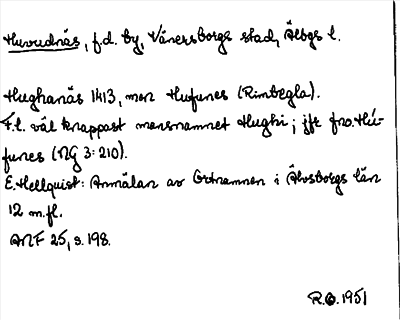 Huvudnäs, f.d. by, Vänersborgs stad, Älbgs l.
Hughanäs 1413, men Hufunes (Rimbegla).
F.l. väl knappast mansnamnet Hughi; jfr fno. Hú-
funes (NG 3:210).
E. Hellquist: Anmälan av Ortnamnen i Älvsborgs län
12 m.fl.
ANF 25, s. 198.
R.O. 1951